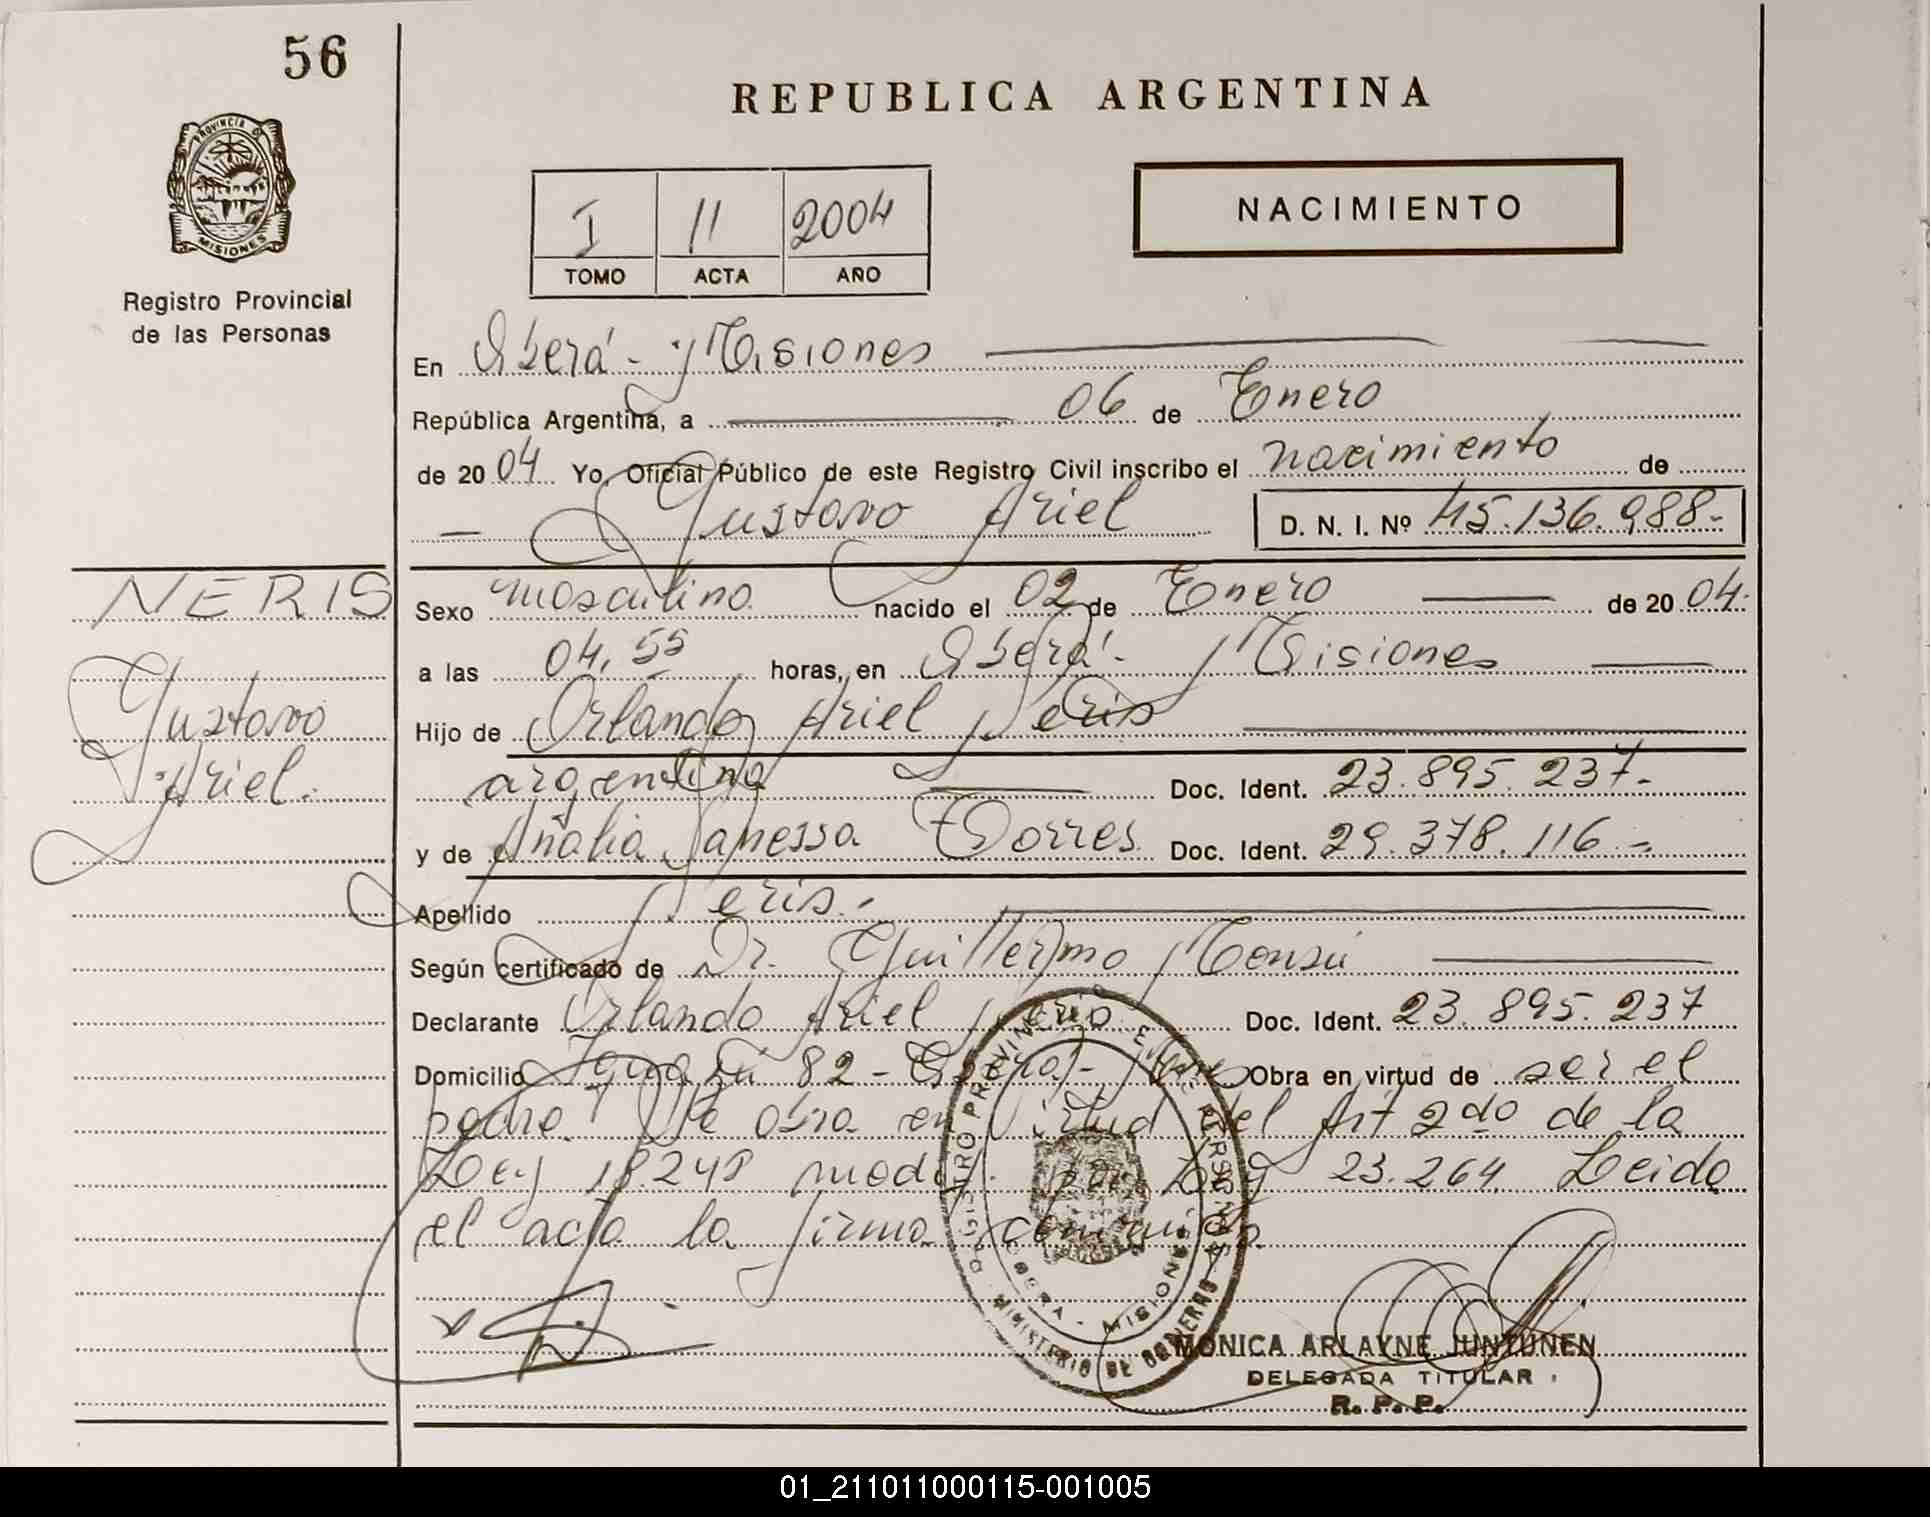 56
PROVINCIA DE
MISIONES
Registro Provincial
de las Personas
REPUBLICA ARGENTINA
I 11 2004
TOMO ACTA AÑO
NACIMIENTO
En Oberá - Misiones
República Argentina, a 06 de Enero
de 2004 Yo, Oficial Público de este Registro Civil inscribo el nacimiento de
Gustavo Ariel D. N. I. Nº 45.136.988-
NERIS
Gustavo
Ariel.
Sexo masculino nacido el 02 de Enero de 2004.
a las 04,55 horas, en Oberá - Misiones
Hijo de Orlando Ariel Neris
argentino Doc. Ident. 23.895.237-
y de Analia Vanessa Torres Doc. Ident. 29.378.116.-
Apellido Neris.-
Según certificado de Dr. Guillermo Monsú
Declarante Orlando Ariel Neris Doc. Ident. 23.895.237
Domicilio 82 - Oberá - Mnes Obra en virtud de ser el
padre. Se obra en virtud del Art 2do de la
Ley 18.248 modif. por Ley 23.264. Leida
el acta la firma conmigo
REGISTRO PROVINCIAL DE LAS PERSONAS
OBERA - MISIONES
MINISTERIO DE GOBIERNO
MONICA ARLAYNE JUNTUNEN
DELEGADA TITULAR
R. P. P.
01_211011000115-001005